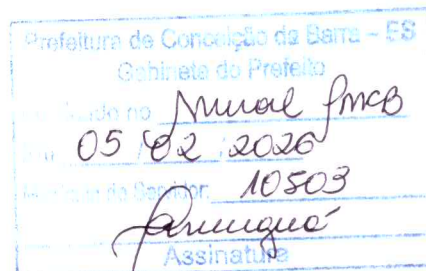 Prefeitura de Conceição da Barra – ES
Gabinete do Prefeito
no Mural PMCB
05 / 02 / 2026
do Servidor: 10503
Assinatura